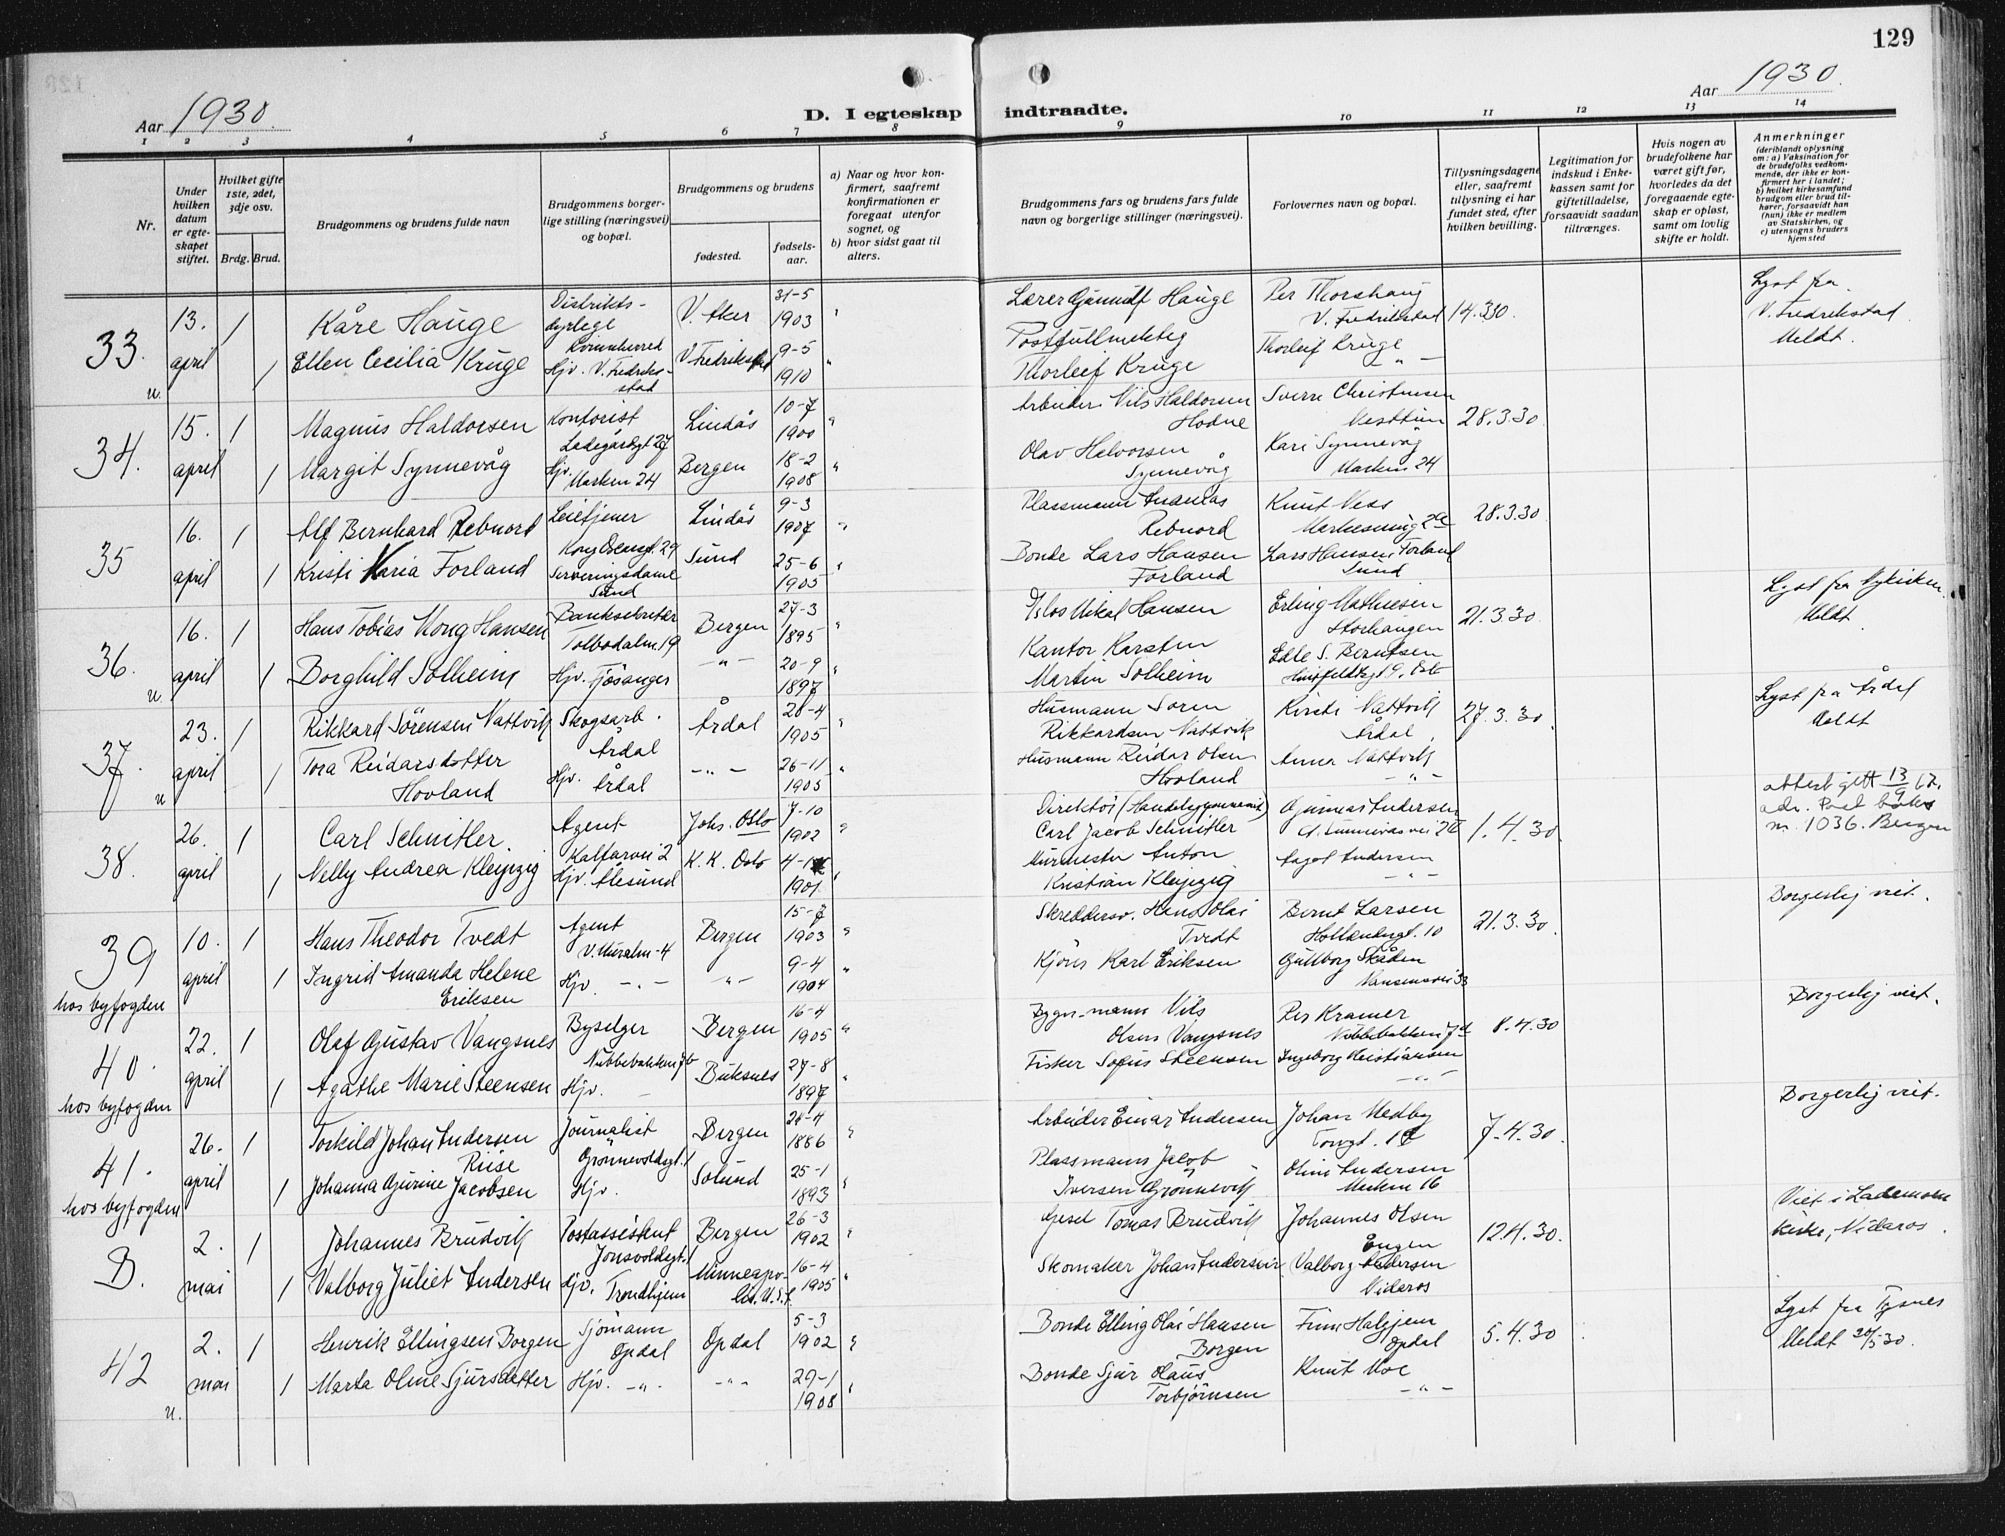 129
Aar 1930.
D. I egteskap indtraadte.
Aar 1930.
1 2 3 4 5 6 7 8 9 10 11 12 13 14
Nr.
Under hvilken datum er egteskapet stiftet.
Hvilket gifte 1ste, 2det, 3dje osv.
Brdg. Brud.
Brudgommens og brudens fulde navn
Brudgommens borgerlige stilling (næringsvei) og bopæl.
Brudgommens og brudens
fødested.
fødselsaar.
a) Naar og hvor konfirmert, saafremt konfirmationen er foregaat utenfor sognet, og
b) hvor sidst gaat til alters.
Brudgommens fars og brudens fars fulde navn og borgerlige stillinger (næringsvei).
Forlovernes navn og bopæl.
Tillysningsdagene eller, saafremt tillysning ei har fundet sted, efter hvilken bevilling.
Legitimation for indskud i Enkekassen samt for giftetilladelse, forsaavidt saadan tiltrænges.
Hvis nogen av brudefolkene har været gift før, hvorledes da det foregaaende egteskap er opløst, samt om lovlig skifte er holdt.
Anmerkninger
(deriblandt oplysning om: a) Vaksination for de brudefolks vedkommende, der ikke er konfirmert her i landet; b) hvilket kirkesamfund brudgom eller brud tilhører, forsaavidt han (hun) ikke er medlem av Statskirken, og c) utensogns bruders hjemsted
33. u.
13. april
1 Kåre Hauge
Distriktsdyrlege
V. Aker
31-5 1903
Lærer Hauge
Per Thorshaug
V. Fredrikstad
14.3.30
Lyst fra V. Fredrikstad. Meldt.
1 Ellen Cecilia Kruge
Hjv. V. Fredrikstad
V. Fredrikstad
9-5 1910
Postfullmektig Thorleif Kruge
Thorleif Kruge
34.
15. april
1 Magnus Haldorsen
Kontorist Ladegårdsgt 27
Lindås
10-7 1900
Arbeider Nils Haldorsen Hodne
Sverre Christensen Nesttun
28.3.30
1 Margit Synnevåg
Hjv. Marken 24
Bergen
18-2 1908
Olav Halvorsen Synnevåg
Kari Synnevåg Marken 24
35
16. april
1 Alf Bernhard Rebnord
Kong Oscarsgt. 29
Lindås
9-3 1907
Plassmann Andreas Rebnord
Knut Ness
28.3.30
1 Kristi Maria Forland
Serveringsdame Sund
Sund
25-6 1905
Bonde Lars Hansen Forland
Lars Hansen Forland Sund
36. u
16. april
1 Hans Tobias Kong Hansen
Banksekretær Tolbodalm. 19
Bergen
27-3 1895
Mikal Hansen
Erling Mathiesen Storhaugen
21.3.30
Lyst fra Nykirken. Meldt.
1 Borghild Solheim
Hjv. Fjøsanger
-"-
20-9 1897
Kantor Karsten Martin Solheim
Edle S. Berntsen
37. u
23. april
1 Rikkard Sørensen Nattvik
Skogsarb. Årdal
Årdal
28-4 1905
Husmann Søren Rikkardsen Nattvik
Kirsti Nattvik Årdal
27.3.30
Lyst fra Årdal Meldt
1 Tora Reidarsdotter Hovland
Hjv. Årdal
-"-
26-11 1905
Husmann Reidar Olsen Hovland
Anna Nattvik -"-
38.
26. april
1 Carl Schnitler.
Agent Kalfarvei 2
Johs. Oslo
7-10 1902
Direktør (Handelsgymnasiet) Carl Jacob Schnitler
Gunnar Andersen
1.4.30
attest gitt 13/9 67.
nr. 1036. Bergen
1 Nelly Andrea Kleipzig
Hjv. Ålesund
K. K. Oslo
1901
Murmester Anton Kristian Kleipzig
Aagot Andersen -"-
39 hos byfogden
10. april
1 Hans Theodor Tvedt
Agent V. Muralm. 4
Bergen
15-7 1903
Skreddersv. Hans Olai Tvedt
Bernt Larsen Hollendergt. 10
21.3.30
Borgerlig viet.
1 Ingrid Amanda Helene Eriksen
Hjv. -"-
-"-
9-4 1904
Karl Eriksen
Gullborg Skåden Nansensvei 33
40. hos byfogden
22. april
1 Olaf Gustav Vangsnes
Byselger Nubbebakken 7b
Bergen
16-4 1905
Bygn.mann Nils Olsen Vangsnes
Per Kramer
8.4.30
Borgerlig viet.
1 Agathe Marie Steensen
Hjv.
Buksnes
27-8 1897
Fisker Sofus Steensen
Ingeborg Kristiansen -"-
41. hos byfogden
26. april
1 Torkild Johan Andersen Riise
Journalist Grønnevoldsgt. 1
Bergen
24-4 1886
Arbeider Einar Andersen
Johan Medby
7.4.30.
Borgerlig viet.
1 Johanna Gurine Jacobsen
Hjv.
Solund
25-1 1893
Plassmann Jacob Iversen Grønnevik
Oline Andersen Marken 16
B.
2. mai
1 Johannes Brudvik
Postassistent Jonsvoldsgt. 1
Bergen
26-3 1902
Gesel Tomas Brudvik
Johannes Olsen Engen
12.4.30.
Viet i Lademoen kirke, Nidaros.
1 Valborg Juliet Andersen
Hjv. Trondhjem
Minneapolis. U.S.A.
16-4 1905
Skomaker Johan Andersen
Valborg Andersen Nidaros
42 u.
2. mai
1 Henrik Ellingsen Borgen
Sjømann Opdal
Opdal
5-3 1902
Bonde Elling Olai Hansen Borgen
Finn Halgjem Opdal
5.4.30
Lyst fra Tysnes Meldt 20/5 30.
1 Marta Oline Sjursdatter
Hjv. -"-
-"-
29-1 1908
Bonde Sjur Olaus Torbjørnsen
Knut Moe -"-